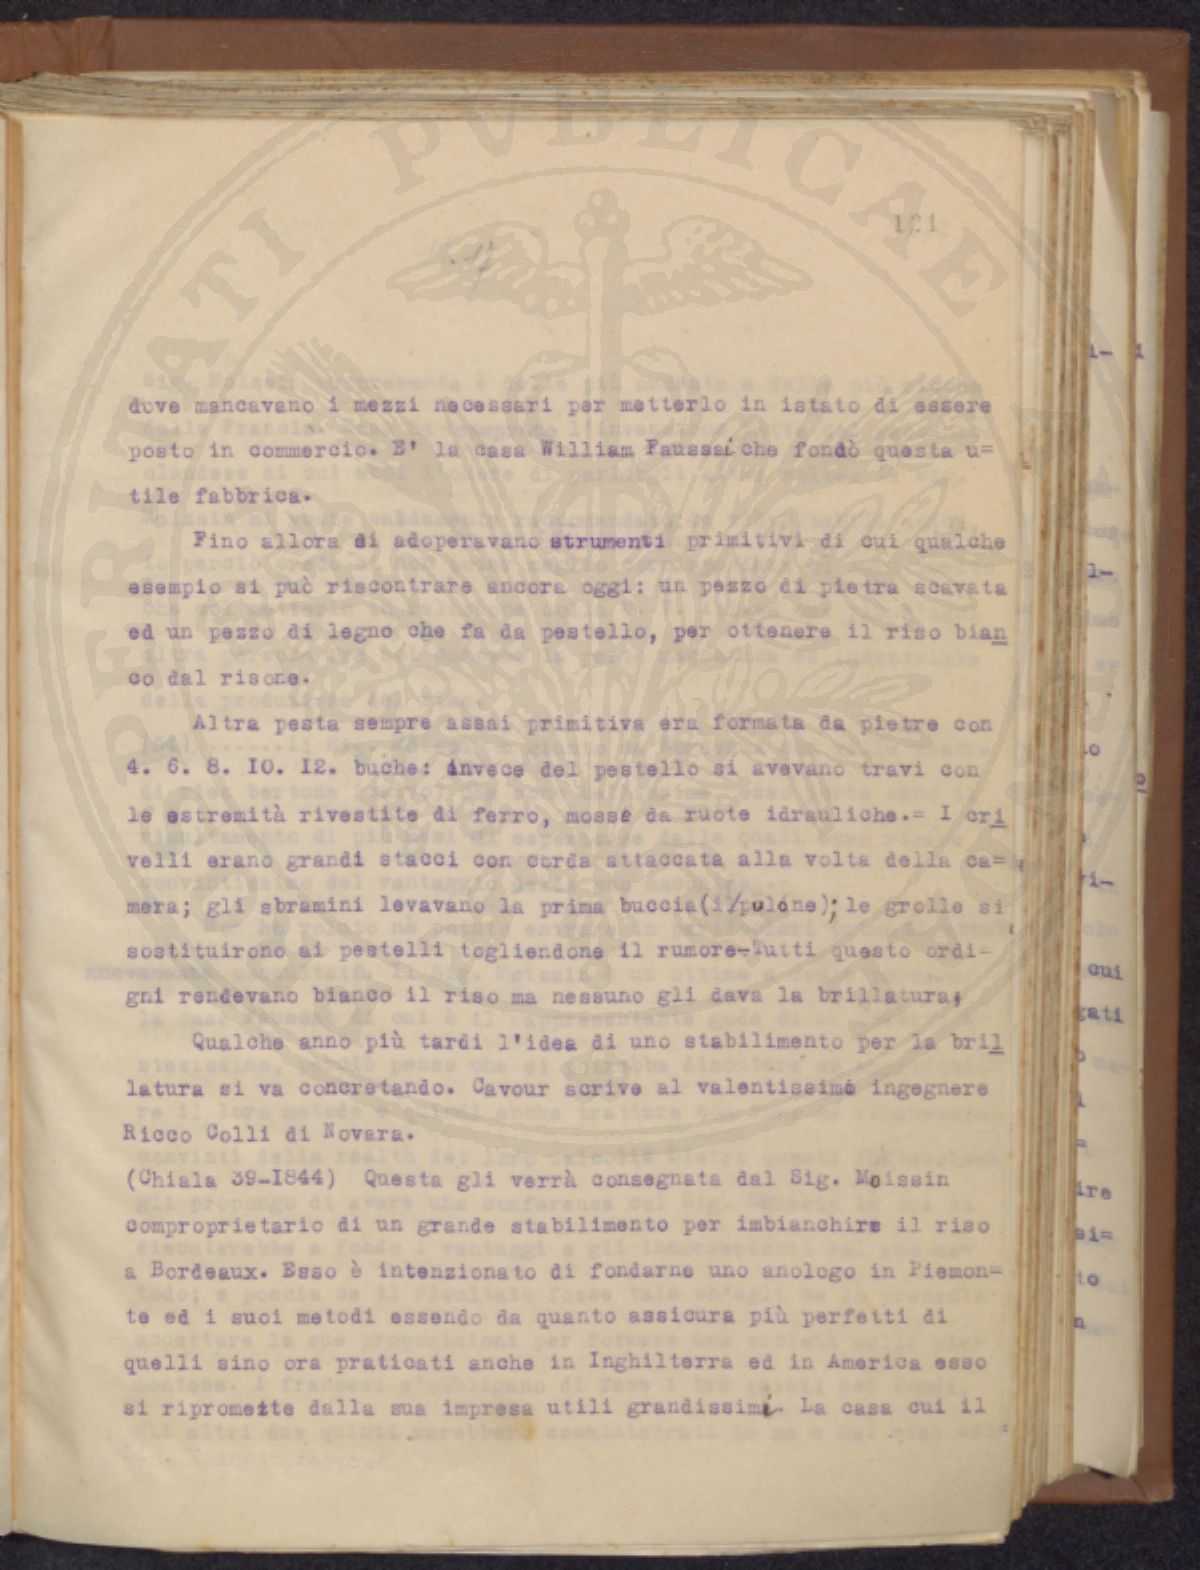 PROSPERITATI PUBLICAE
121
dove mancavano i mezzi necessari per metterlo in istato di essere
posto in commercio. E' la casa William Faussai che fondò questa u=
tile fabbrica.
Fino allora si adoperavano strumenti primitivi di cui qualche
esempio si può riscontrare ancora oggi: un pezzo di pietra scavata
ed un pezzo di legno che fa da pestello, per ottenere il riso bian
co dal risone.
Altra pesta sempre assai primitiva era formata da pietre con
4. 6. 8. I0. I2. buche: invece del pestello si avevano travi con
le estremità rivestite di ferro, mosse da ruote idrauliche.= I cri
velli erano grandi stacci con corda attaccata alla volta della ca=
mera; gli sbramini levavano la prima buccia(il pulone); le grolle si
sostituirono ai pestelli togliendone il rumore-Tutti questo ordi-
gni rendevano bianco il riso ma nessuno gli dava la brillatura;
Qualche anno più tardi l'idea di uno stabilimento per la bril
latura si va concretando. Cavour scrive al valentissimo ingegnere
Ricco Colli di Novara.
(Chiala 39-I844) Questa gli verrà consegnata dal Sig. Moissin
comproprietario di un grande stabilimento per imbianchire il riso
a Bordeaux. Esso è intenzionato di fondarne uno anologo in Piemon=
te ed i suoi metodi essendo da quanto assicura più perfetti di
quelli sino ora praticati anche in Inghilterra ed in America esso
si ripromette dalla sua impresa utili grandissimi. La casa cui il